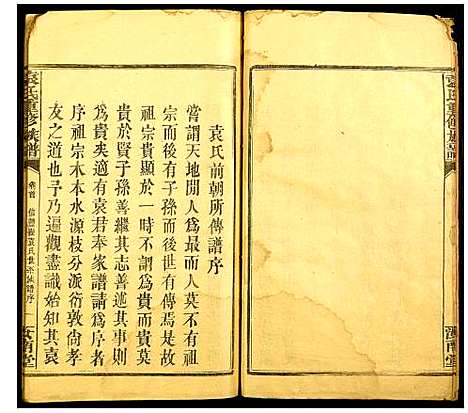 袁氏前朝所傳譜序
嘗謂天地間人為最而人莫不有祖
宗而後有子孫而後世有傳焉是故
祖宗貴顯於一時不謂為貴而貴莫
貴於賢子孫善繼其志善述其事則
為貴矣適有袁君奉家譜請為序其
序祖宗木本水源枝分派衍敦尚孝
友之道也予乃遍觀盡識始知其袁
袁氏重修族譜
卷首